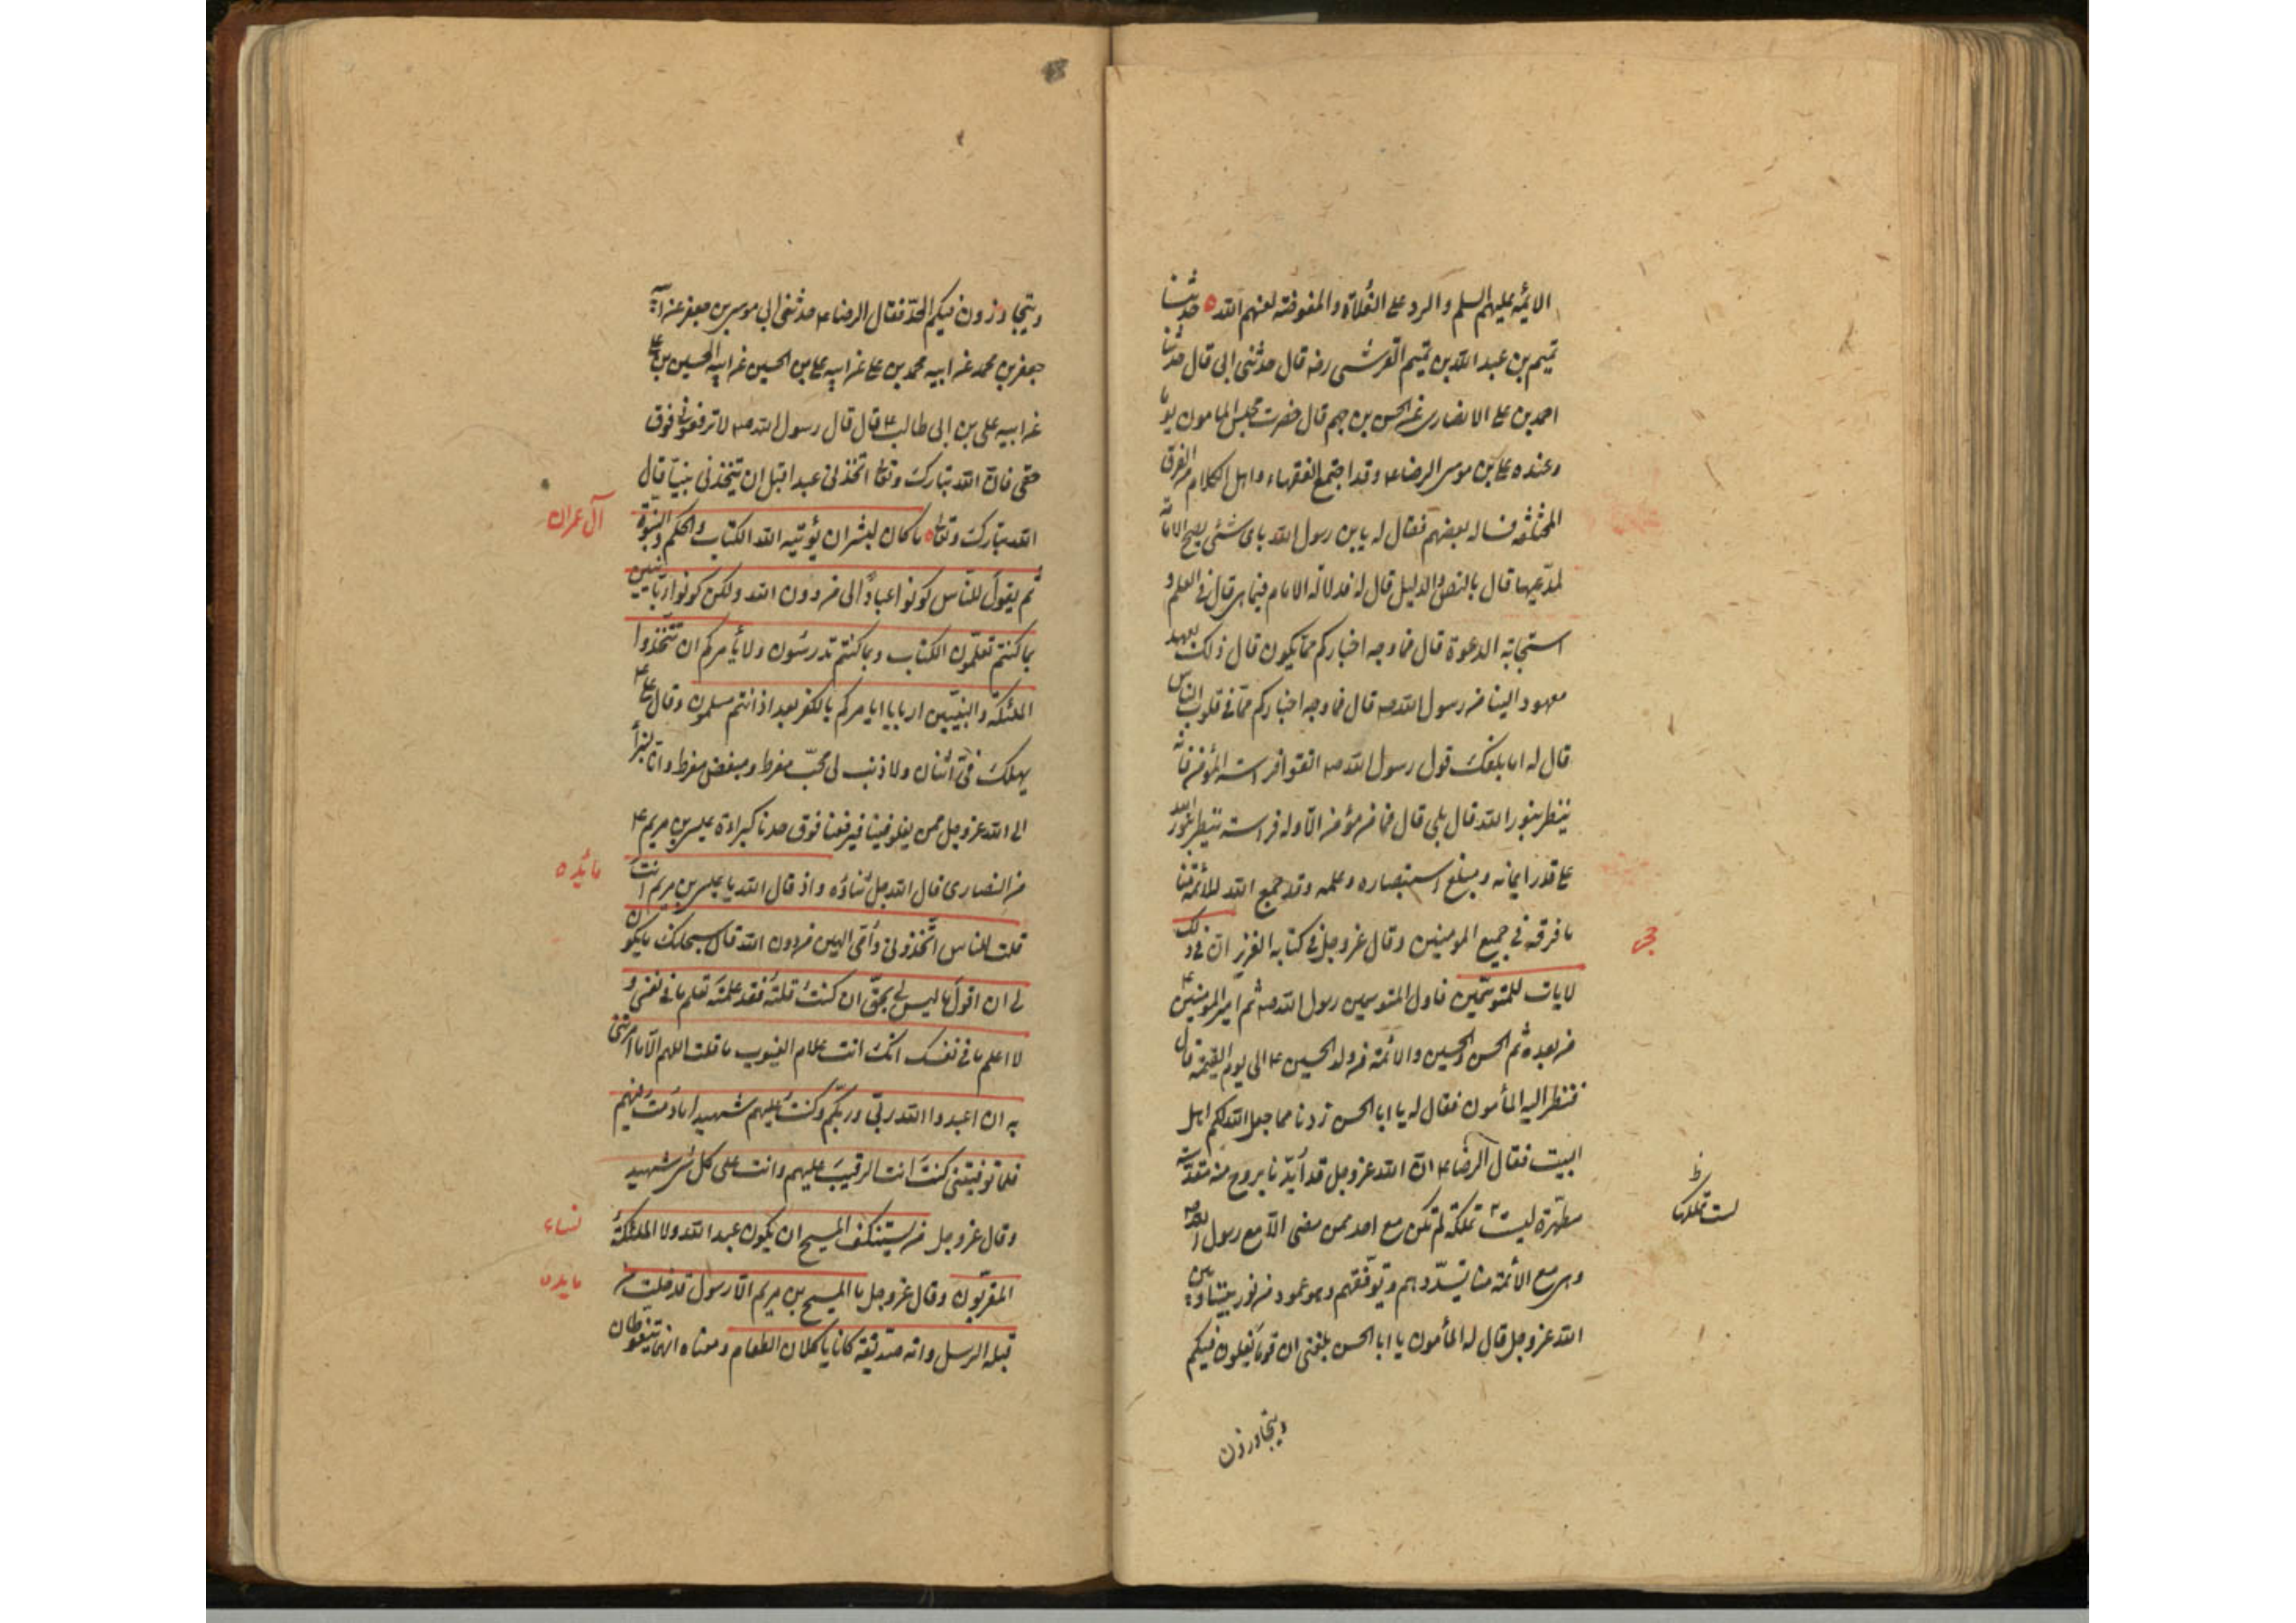 الائمة عليهم السلم والرد على الغلاة والمفوضة لعنهم الله ه حدثنا
تميم بن عبد الله بن تميم القرشى رضه قال حدثنى ابى قال حدثنا
احمد بن على الانصارى عن الحسن بن جهم قال حضرت مجلس المامون يوما
وعنده على بن موسى الرضا ع وقد اجتمع الفقهاء واهل الكلام من الفرق
المختلفة فساله بعضهم فقال له يابن رسول الله باى شئى يصح الامامة
لمدعيها قال بالنص والدليل قال له فدلالة الامام فيما هى قال فى العلم و
استجابة الدعوة قال فما وجه اخباركم بما يكون قال ذلك بعهد
معهود الينا من رسول الله صه قال فما وجه اخباركم بما فى قلوب الناس
قال له اما بلغك قول رسول الله صه اتقوا فراسة المؤمن فانه
ينظر بنور الله قال بلى قال فما من مؤمن الا وله فراسة ينظر بنور الله
على قدر ايمانه ومبلغ استبصاره وعلمه وقد جمع الله للائمة منا
ما فرقه فى جميع المومنين وقال عز وجل فى كتابه العزيز ان فى ذلك
لايات للمتوسمين فاول المتوسمين رسول الله صه ثم امير المومنين ع
من بعده ثم الحسن والحسين والائمة من ولد الحسين ع الى يوم القيمة قال
فنظر اليه المأمون فقال له يا ابا الحسن زدنا مما جعل الله لكم اهل
البيت فقال الرضا ع ان الله عز وجل قد ايدنا بروح منه مقدسة
مطهرة ليست بملكة لم تكن مع احد ممن مضى الا مع رسول الله صه
وهى مع الائمة منا تسددهم وتوفقهم وهو عمود من نور بيننا وبين
الله عز وجل قال له المأمون يا ابا الحسن بلغنى ان قوما يغلون فيكم
ويتجاوزون
حجر
ليست بملك
ويتجاوزون فيكم الحد فقال الرضا ع حدثنى ابى موسى بن جعفر عن ابيه
جعفر بن محمد عن ابيه محمد بن على عن ابيه على بن الحسين عن ابيه الحسين بن على
عن ابيه على بن ابى طالب ع قال قال رسول الله صه لا ترفعونى فوق
حقى فان الله تبارك وتعالى اتخذنى عبدا قبل ان يتخذنى نبيا قال
الله تبارك وتعالى ه ما كان لبشر ان يؤتيه الله الكتاب والحكم والنبوة
ثم يقول للناس كونوا عبادا لى من دون الله ولكن كونوا ربانيين
بما كنتم تعلمون الكتاب وبما كنتم تدرسون ولا يأمركم ان تتخذوا
الملئكة والنبيين اربابا ايامركم بالكفر بعد اذ انتم مسلمون وقال على ع
يهلك فى اثنان ولا ذنب لى محب مفرط ومبغض مفرط وانا لنبرأ
الى الله عز وجل ممن يغلو فينا فيرفعنا فوق حدنا كبراءة عيسى بن مريم ع
من النصارى قال الله جل ثناؤه واذ قال الله يا عيسى بن مريم ءانت
قلت للناس اتخذونى وأمى الهين من دون الله قال سبحانك ما يكون
لى ان اقول ما ليس لى بحق ان كنت قلته فقد علمته تعلم ما فى نفسى و
لا اعلم ما فى نفسك انك انت علام الغيوب ما قلت لهم الا ما امرتنى
به ان اعبدوا الله ربى وربكم وكنت عليهم شهيدا ما دمت فيهم
فلما توفيتنى كنت انت الرقيب عليهم وانت على كل شئ شهيد
وقال عز وجل من يستنكف المسيح ان يكون عبدا لله ولا الملئكة
المقربون وقال عز وجل ما المسيح بن مريم الا رسول قد خلت من
قبله الرسل وامه صديقة كانا ياكلان الطعام ومعناه انهما يتغوطان
آل عمران
مايده
نساء
مايده